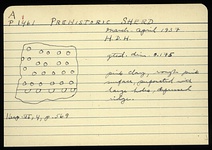 A
P 1461 PREHISTORIC SHERD
March-April 1937
H.D.H.
pink clay, rough pink
surface, perforated with
large holes, depressed
ridge.